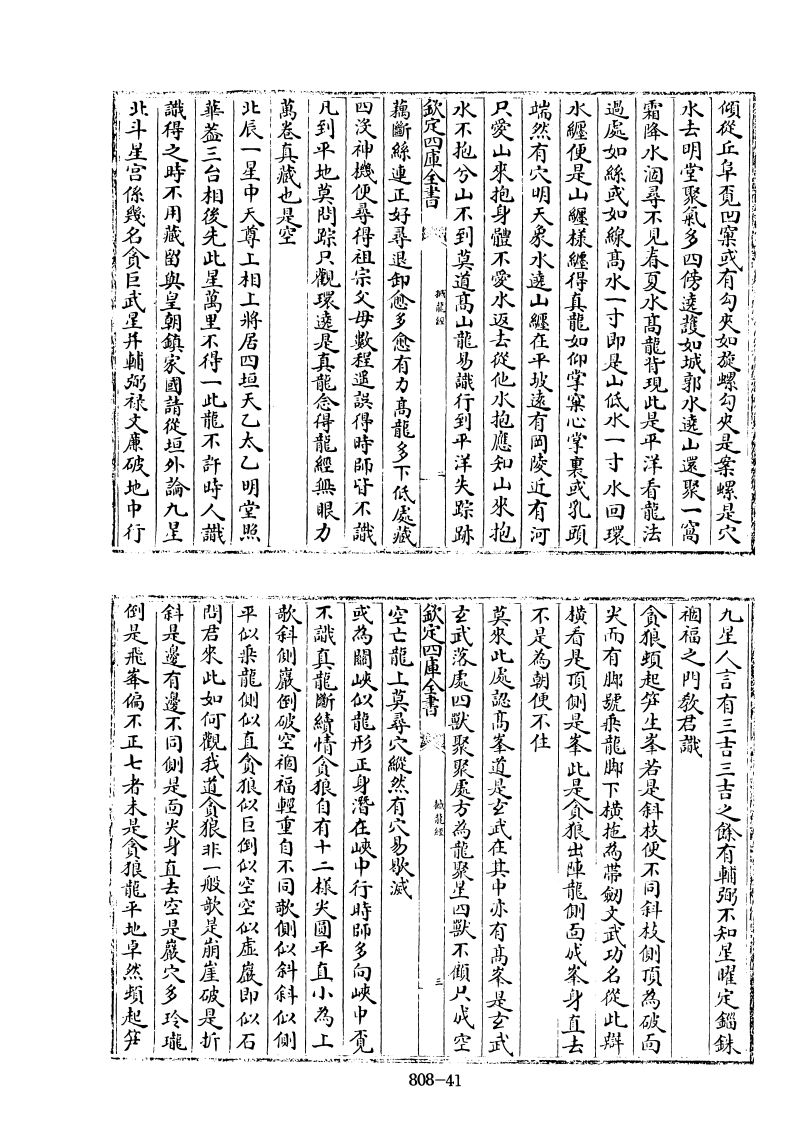 傾從丘阜覓凹窠或有勾夾如旋螺勾夾是案螺是穴
水去明堂聚氣多四傍遶護如城郭水遶山還聚一窩
霜降水涸尋不見春夏水髙龍背現此是平洋看龍法
過處如絲或如線髙水一寸即是山低水一寸水回環
水纒便是山纒樣纒得真龍如仰掌窠心掌裏或乳頭
端然有穴明天象水遶山纒在平坡逺有岡陵近有河
只愛山來抱身體不愛水返去從他水抱應知山來抱
水不抱兮山不到莫道髙山龍易識行到平洋失踪跡
欽定四庫全書
撼龍經
二
藕斷絲連正好尋退卸愈多愈有力髙龍多下低處藏
四沒神機便尋得祖宗父母數程遥誤得時師皆不識
凡到平地莫問踪只觀環遶是真龍念得龍經無眼力
萬卷真藏也是空
北辰一星中天尊上相上將居四垣天乙太乙明堂照
華葢三台相後先此星萬里不得一此龍不許時人識
識得之時不用藏留與皇朝鎮家國請從垣外論九星
北斗星宫係幾名貪巨武星并輔弼禄文廉破地中行
九星人言有三吉三吉之餘有輔弼不知星曜定錙銖
禍福之門教君識
貪狼頓起笋生峯若是斜枝便不同斜枝側頂為破面
尖而有脚號乗龍脚下横拖為帶劒文武功名從此辯
横看是頂側是峯此是貪狼出陣龍側面成峯身直去
不是為朝便不住
莫來此處認髙峯道是𤣥武在其中亦有髙峯是𤣥武
𤣥武落處四獸聚聚處方為龍聚星四獸不顧只成空
欽定四庫全書
撼龍經
三
空亡龍上莫尋穴縱然有穴易歇滅
或為關峽似龍形正身潛在峽中行時師多向峽中覓
不識真龍斷續情貪狼自有十二様尖圓平直小為上
欹斜側巖倒破空禍福輕重自不同欹側似斜斜似側
平似乗龍側似直貪狼似巨倒似空空似虚巖即似石
問君來此如何觀我道貪狼非一般欹是崩崖破是折
斜是邊有邊不同側是面尖身直去空是巖穴多玲瓏
倒是飛峯偏不正七者未是貪狼龍平地卓然頓起笋
808-41